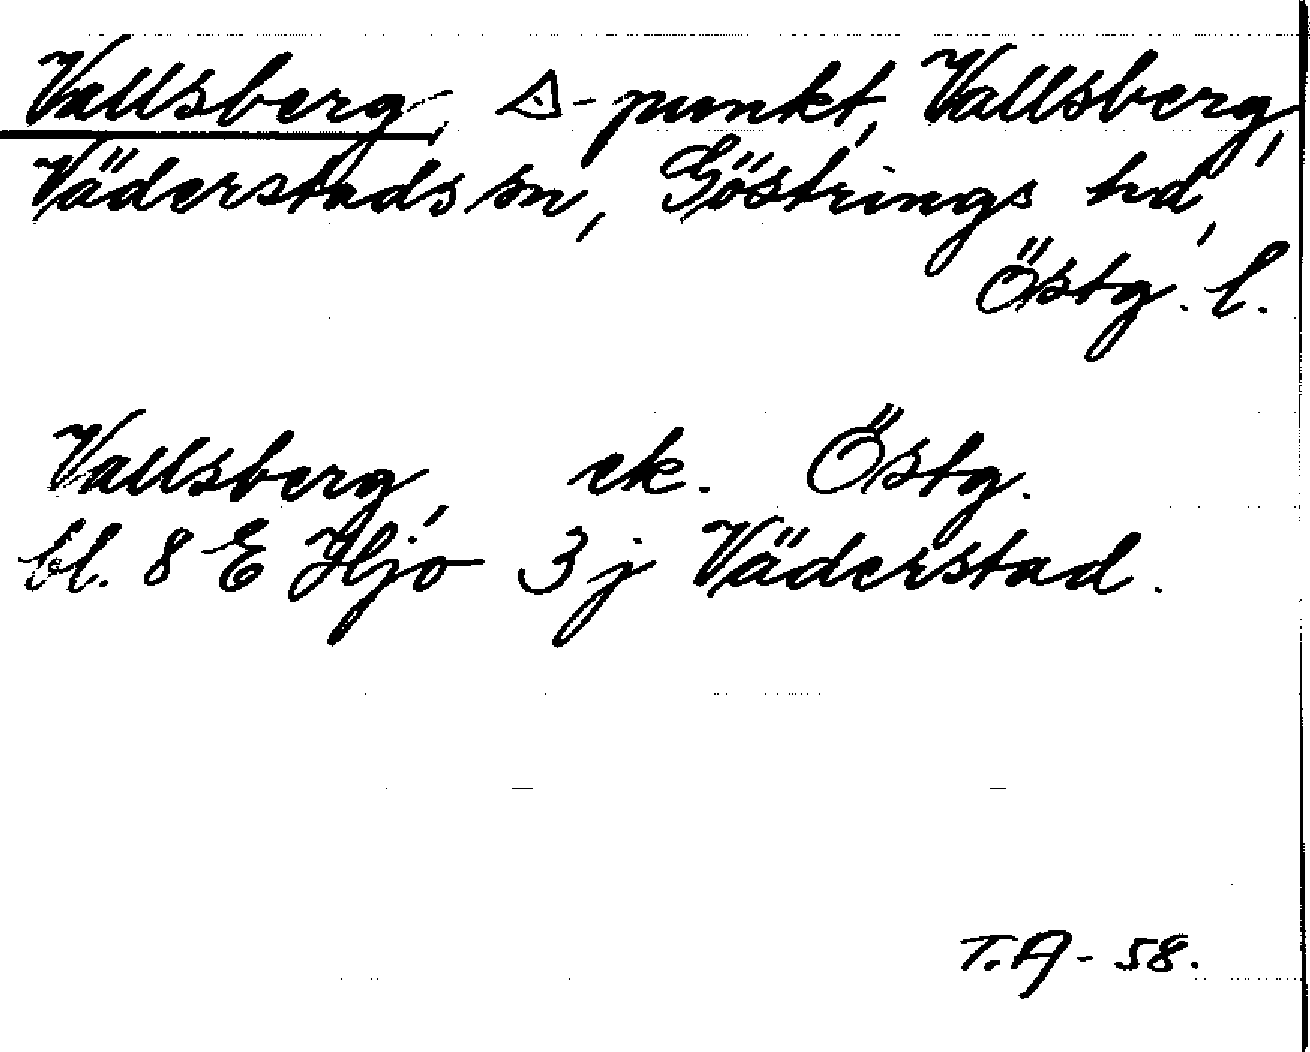 Vallsberg, △-punkt, Vallsberg,
Väderstads sn, Göstrings hd,
Östg. l.
Vallsberg, ek. Östg.
bl. 8 E Hjo 3j Väderstad.
T.A - 58.